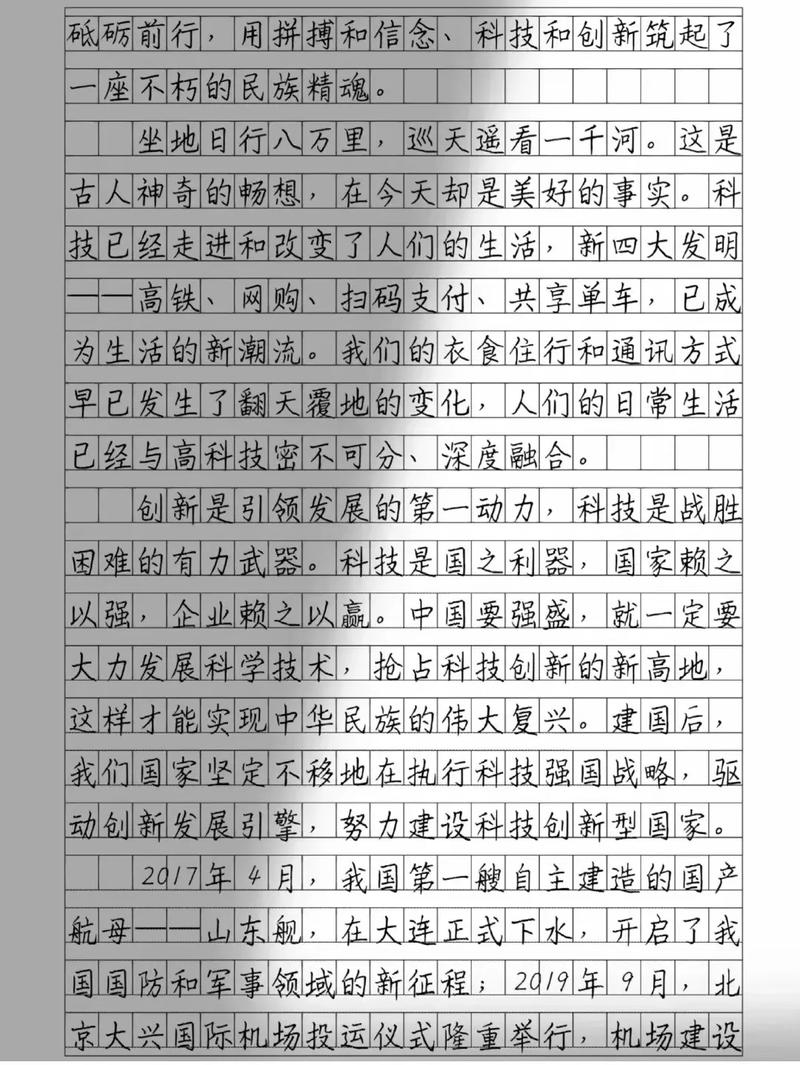 砥砺前行，用拼搏和信念、科技和创新筑起了
一座不朽的民族精魂。
坐地日行八万里，巡天遥看一千河。这是
古人神奇的畅想，在今天却是美好的事实。科
技已经走进和改变了人们的生活，新四大发明
——高铁、网购、扫码支付、共享单车，已成
为生活的新潮流。我们的衣食住行和通讯方式
早已发生了翻天覆地的变化，人们的日常生活
已经与高科技密不可分、深度融合。
创新是引领发展的第一动力，科技是战胜
困难的有力武器。科技是国之利器，国家赖之
以强，企业赖之以赢。中国要强盛，就一定要
大力发展科学技术，抢占科技创新的新高地，
这样才能实现中华民族的伟大复兴。建国后，
我们国家坚定不移地在执行科技强国战略，驱
动创新发展引擎，努力建设科技创新型国家。
2017年4月，我国第一艘自主建造的国产
航母——山东舰，在大连正式下水，开启了我
国国防和军事领域的新征程；2019年9月，北
京大兴国际机场投运仪式隆重举行，机场建设